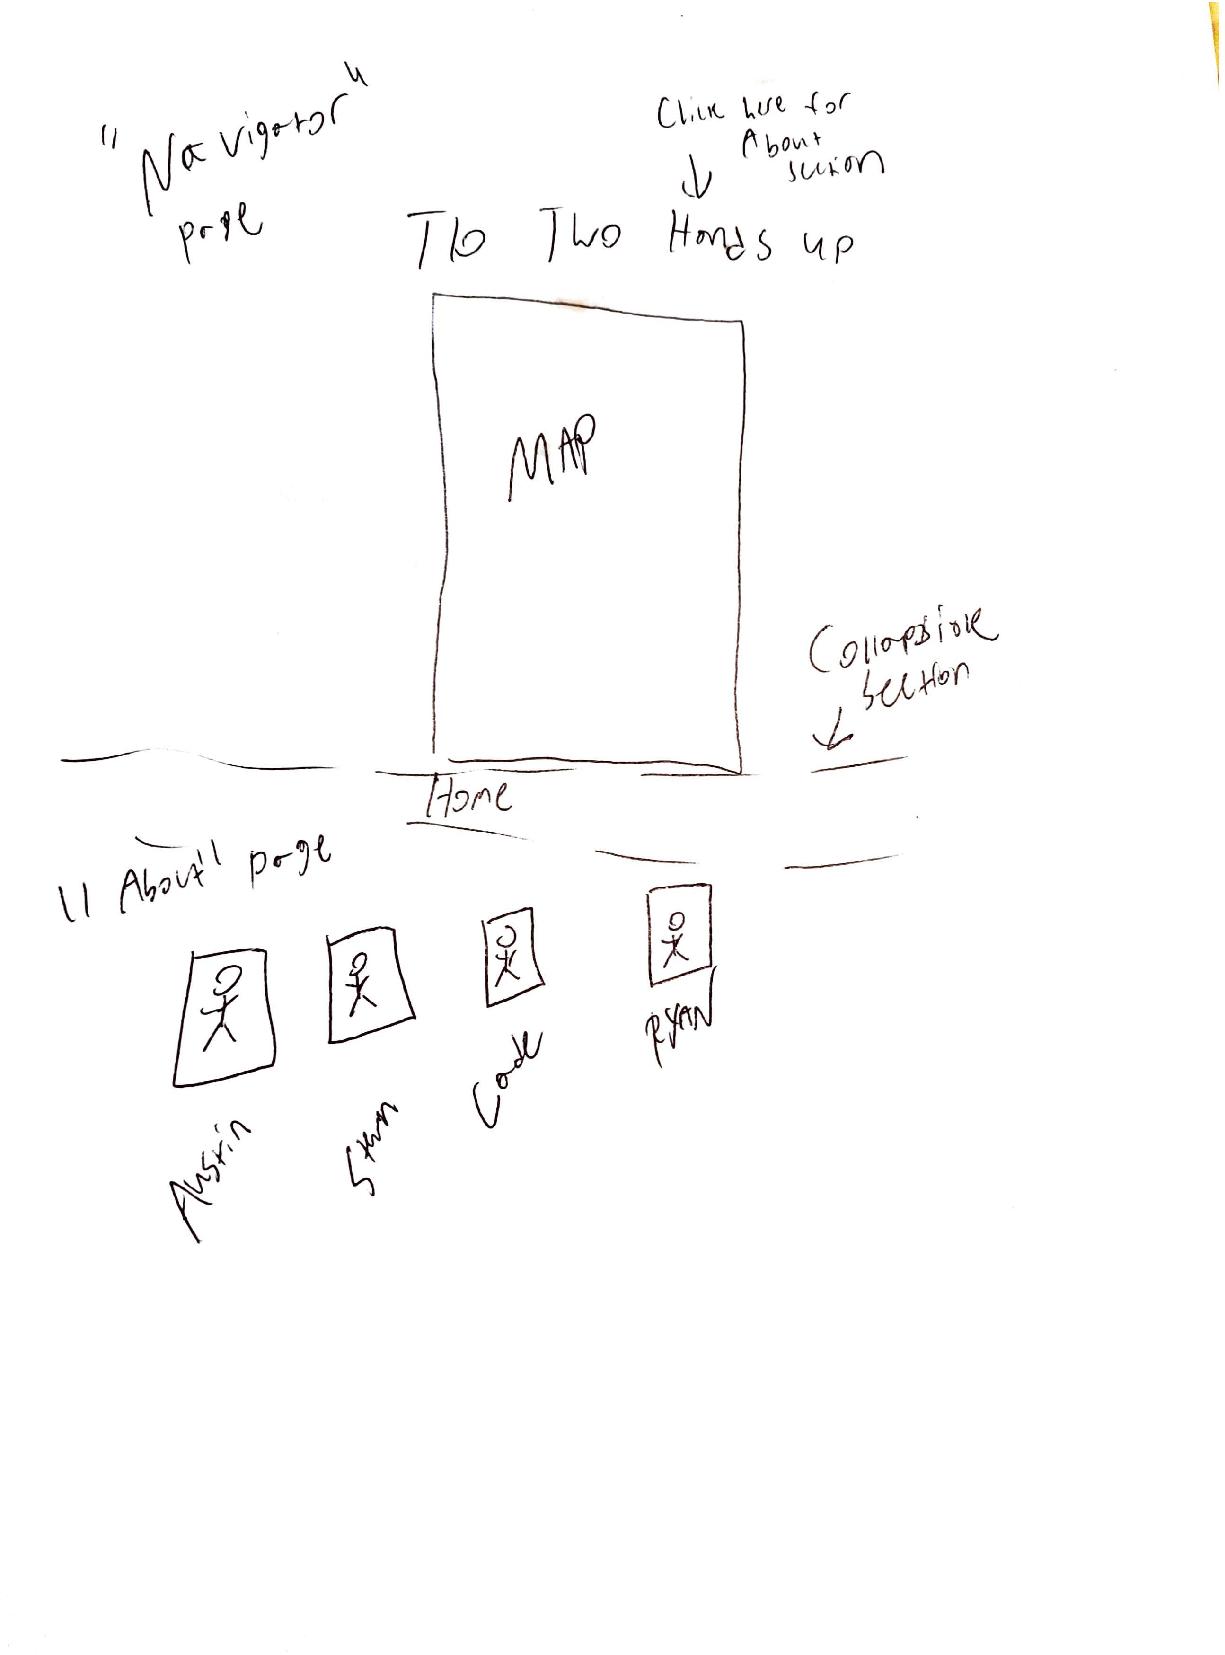 "Navigator"
page
Click here for
About
section
Two Hands up
MAP
Collapsible
section
Home
"About" page
Austin
Code
RYAN